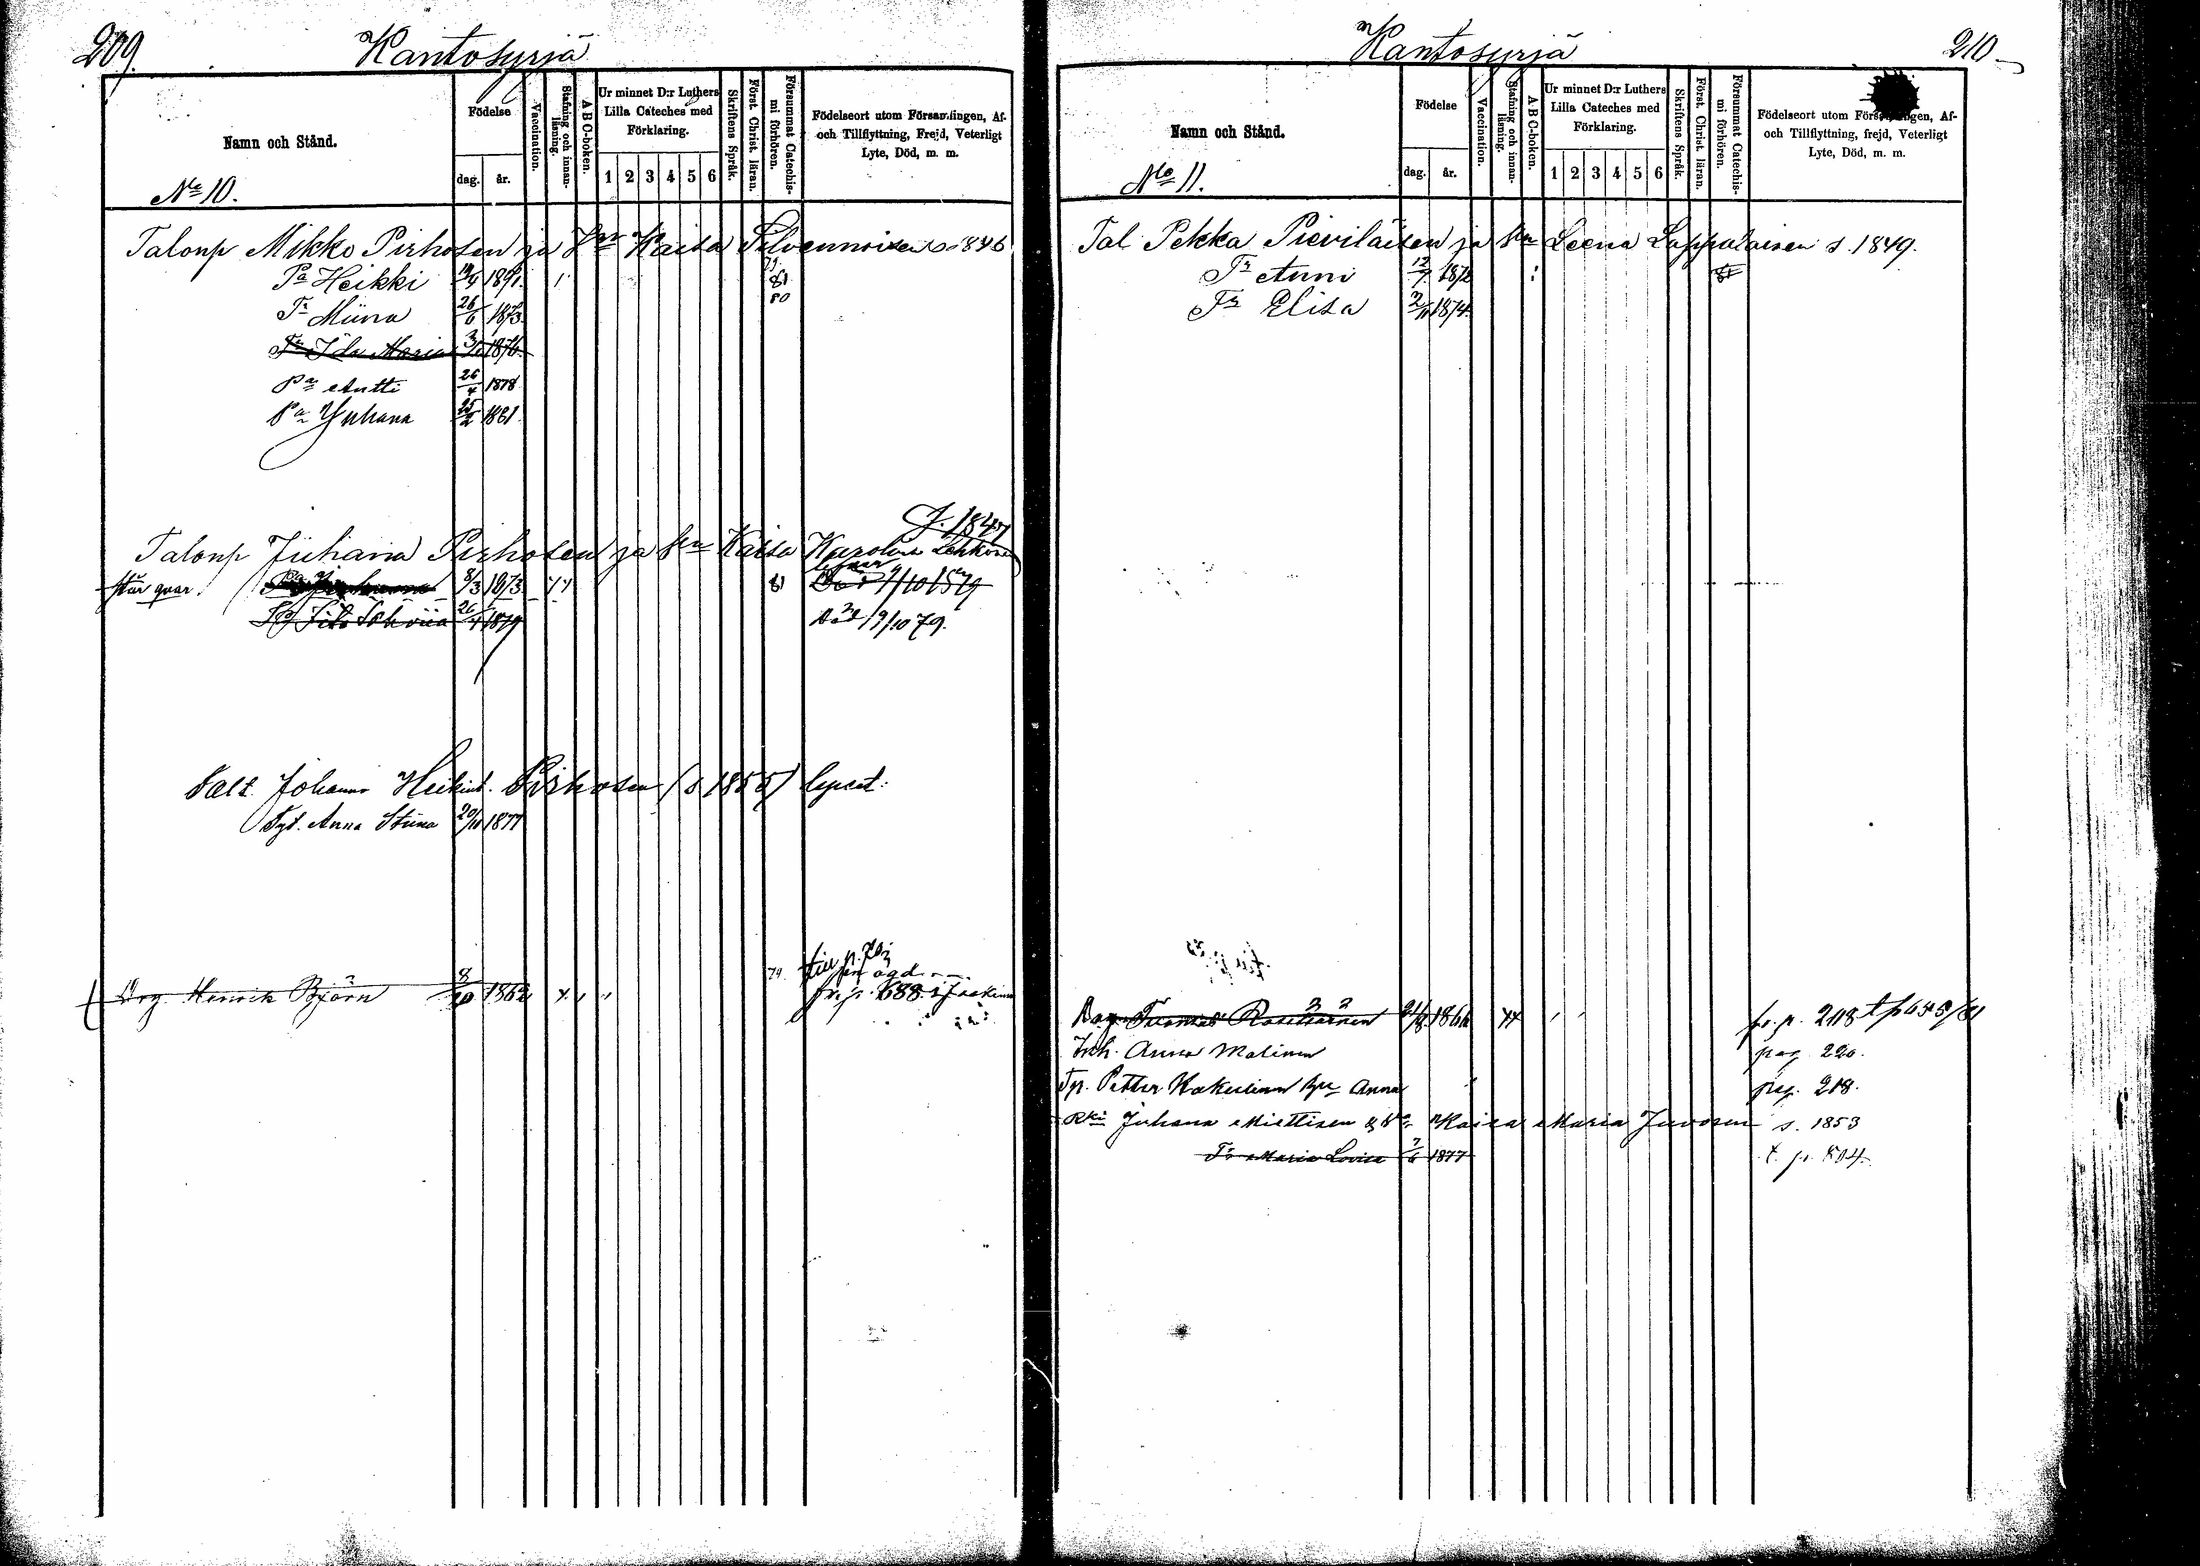 209.
Kantosyrjä
Namn och Stånd.
Födelse
dag.
år.
Vaccination.
Stafning och innan-läsning.
ABC-boken.
Ur minnet D:r Luthers Lilla Cateches med Förklaring.
1 2 3 4 5 6
Skriftens Språk.
Först. Christ. läran.
Försummat Catechis-mi förhören.
Födelseort utom Församlingen, Af- och Tillflyttning, Frejd, Veterligt Lyte, Död, m. m.
No 10.
Talonp Mikko Pirhosen ja Vn Kaisa Silvennoisen s. 1846
Pa Heikki 1871. 81
Tr Miina 26/6 1873. 80
Tr Ida Maria 1876
Pa Antti 26/4 1878
Pa Juhana 25/2 1881
s. 1847
Talonp Juhana Pirhosen ja Vn Kaisa Karolina Lehkonen
står qvar. 8/3 1873 81 Död 9/10 1879
26/4 1879 Död 19/10 79.
Talt. Johanna Heikint. Pirhosen (s 1855) lapset:
Tyt. Anna Stiina 20/11 1877
till p.
79
Drg. Henrik Björn 8/10 1862 fr. p. 688.
Kantosyrjä
210
Namn och Stånd.
Födelse
dag.
år.
Vaccination.
Stafning och innan-läsning.
ABC-boken.
Ur minnet D:r Luthers Lilla Cateches med Förklaring.
1 2 3 4 5 6
Skriftens Språk.
Först. Christ. läran.
Försummat Catechis-mi förhören.
Födelseort utom Församlingen, Af- och Tillflyttning, frejd, Veterligt Lyte, Död, m. m.
No 11.
Tal Pekka Pieviläisen ja Vn Leena Lappalaisen s. 1849.
Tr Anni 12/7 1872 81
Tr Elisa 2/11 1874.
Tuomas fr. p. 218
Inh. Anna Malinen pag. 220.
Tp. Petter Anna pag. 218.
Rki Juhana Miettisen & Va Kaisa Maria Juvosen s. 1853
Tr Maria Lovisa 7/6 1877 t. p.